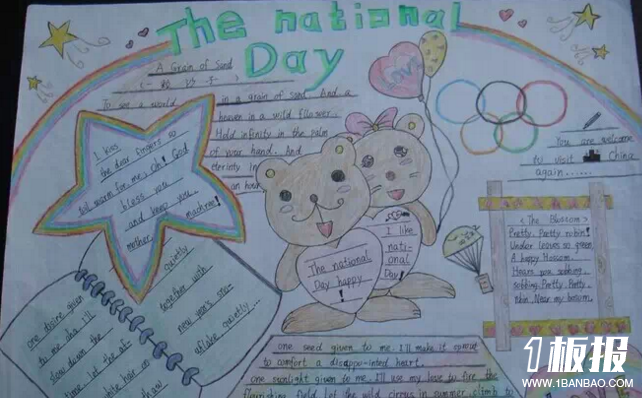 The national
Day
A Grain of Sand
(一粒沙子)
To see a world in a grain of sand. And a
heaven in a wild fllower.
Hold infinity in the palm
of your hand. And
an hour
I kiss
the dear fingers so
toil worn for me, Oh! God
bless you
and keep you.
mother
machree!
quietly
together with
new year's
quietly...
one desire given
to me
I'll
slow down the
time let the
LOVE
The national
Day happy
!
I like
nati-
onal
Day!
You are welcome
to visit China
again......
<The Blossom>
Pretty. Pretty robin!
Under leaves so green
A happy Blossom
Hears you sobbing.
sobbing. Pretty. Pretty.
robin. Near my bosom.
one seed given to me. I'll make it sprout
to comfort a disappo-inted heart.
one sunlight given to me. I'll use my love to fire the
field let the wild circus in summer climb to
1板报
WWW.1BANBAO.COM